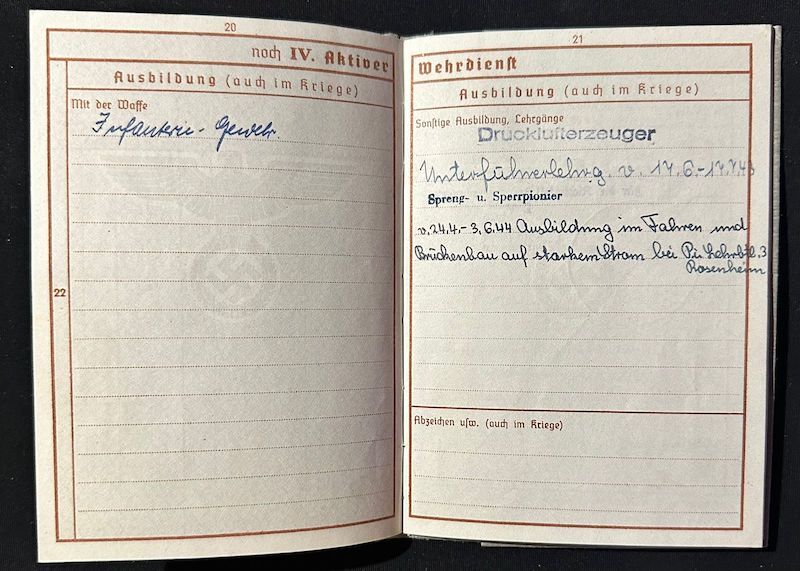 20
noch IV. Aktiver
Ausbildung (auch im Kriege)
Mit der Waffe
Infanterie-Gewehr
22
21
Wehrdienst
Ausbildung (auch im Kriege)
Sonstige Ausbildung, Lehrgänge
Drucklufterzeuger
Unterführerlehrg. v. 17.6.-17.7.43
Spreng- u. Sperrpionier
v. 24.4.- 3.6.44 Ausbildung im Fahren und
Brückenbau auf starkem Strom bei Pi. Lehrbtl. 3
Rosenheim
Abzeichen usw. (auch im Kriege)